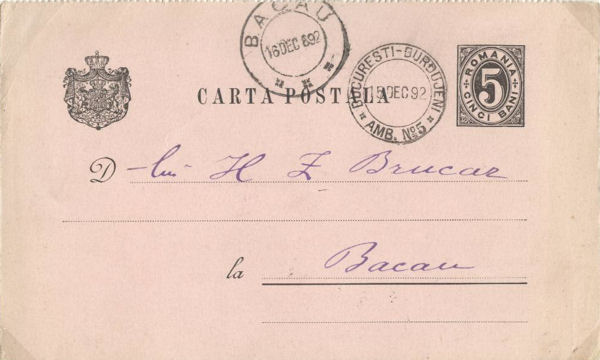 BACAU
16 DEC 892
BUCURESTI-BURDUJENI
15 DEC 92
AMB. No 5
ROMANIA
5
CINCI BANI
CARTA POSTALA
D-lui H Z Brucar
la Bacau